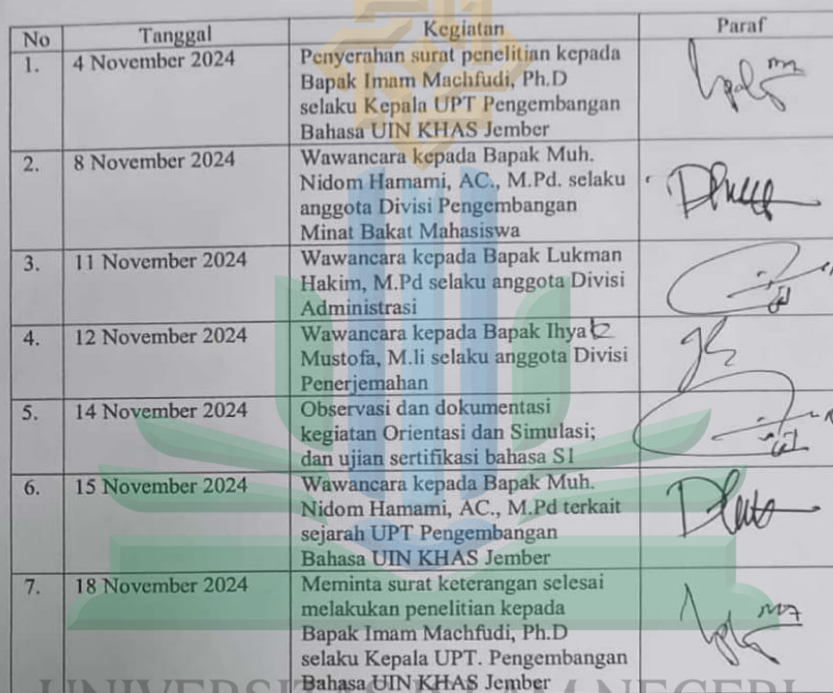 No Tanggal Kegiatan Paraf
1. 4 November 2024 Penyerahan surat penelitian kepada
Bapak Imam Machfudi, Ph.D
selaku Kepala UPT Pengembangan
Bahasa UIN KHAS Jember
2. 8 November 2024 Wawancara kepada Bapak Muh.
Nidom Hamami, AC., M.Pd. selaku
anggota Divisi Pengembangan
Minat Bakat Mahasiswa
3. 11 November 2024 Wawancara kepada Bapak Lukman
Hakim, M.Pd selaku anggota Divisi
Administrasi
4. 12 November 2024 Wawancara kepada Bapak Ihya
Mustofa, M.li selaku anggota Divisi
Penerjemahan
5. 14 November 2024 Observasi dan dokumentasi
kegiatan Orientasi dan Simulasi;
dan ujian sertifikasi bahasa S1
6. 15 November 2024 Wawancara kepada Bapak Muh.
Nidom Hamami, AC., M.Pd terkait
sejarah UPT Pengembangan
Bahasa UIN KHAS Jember
7. 18 November 2024 Meminta surat keterangan selesai
melakukan penelitian kepada
Bapak Imam Machfudi, Ph.D
selaku Kepala UPT. Pengembangan
Bahasa UIN KHAS Jember
UNIVERSITAS ISLAM NEGERI